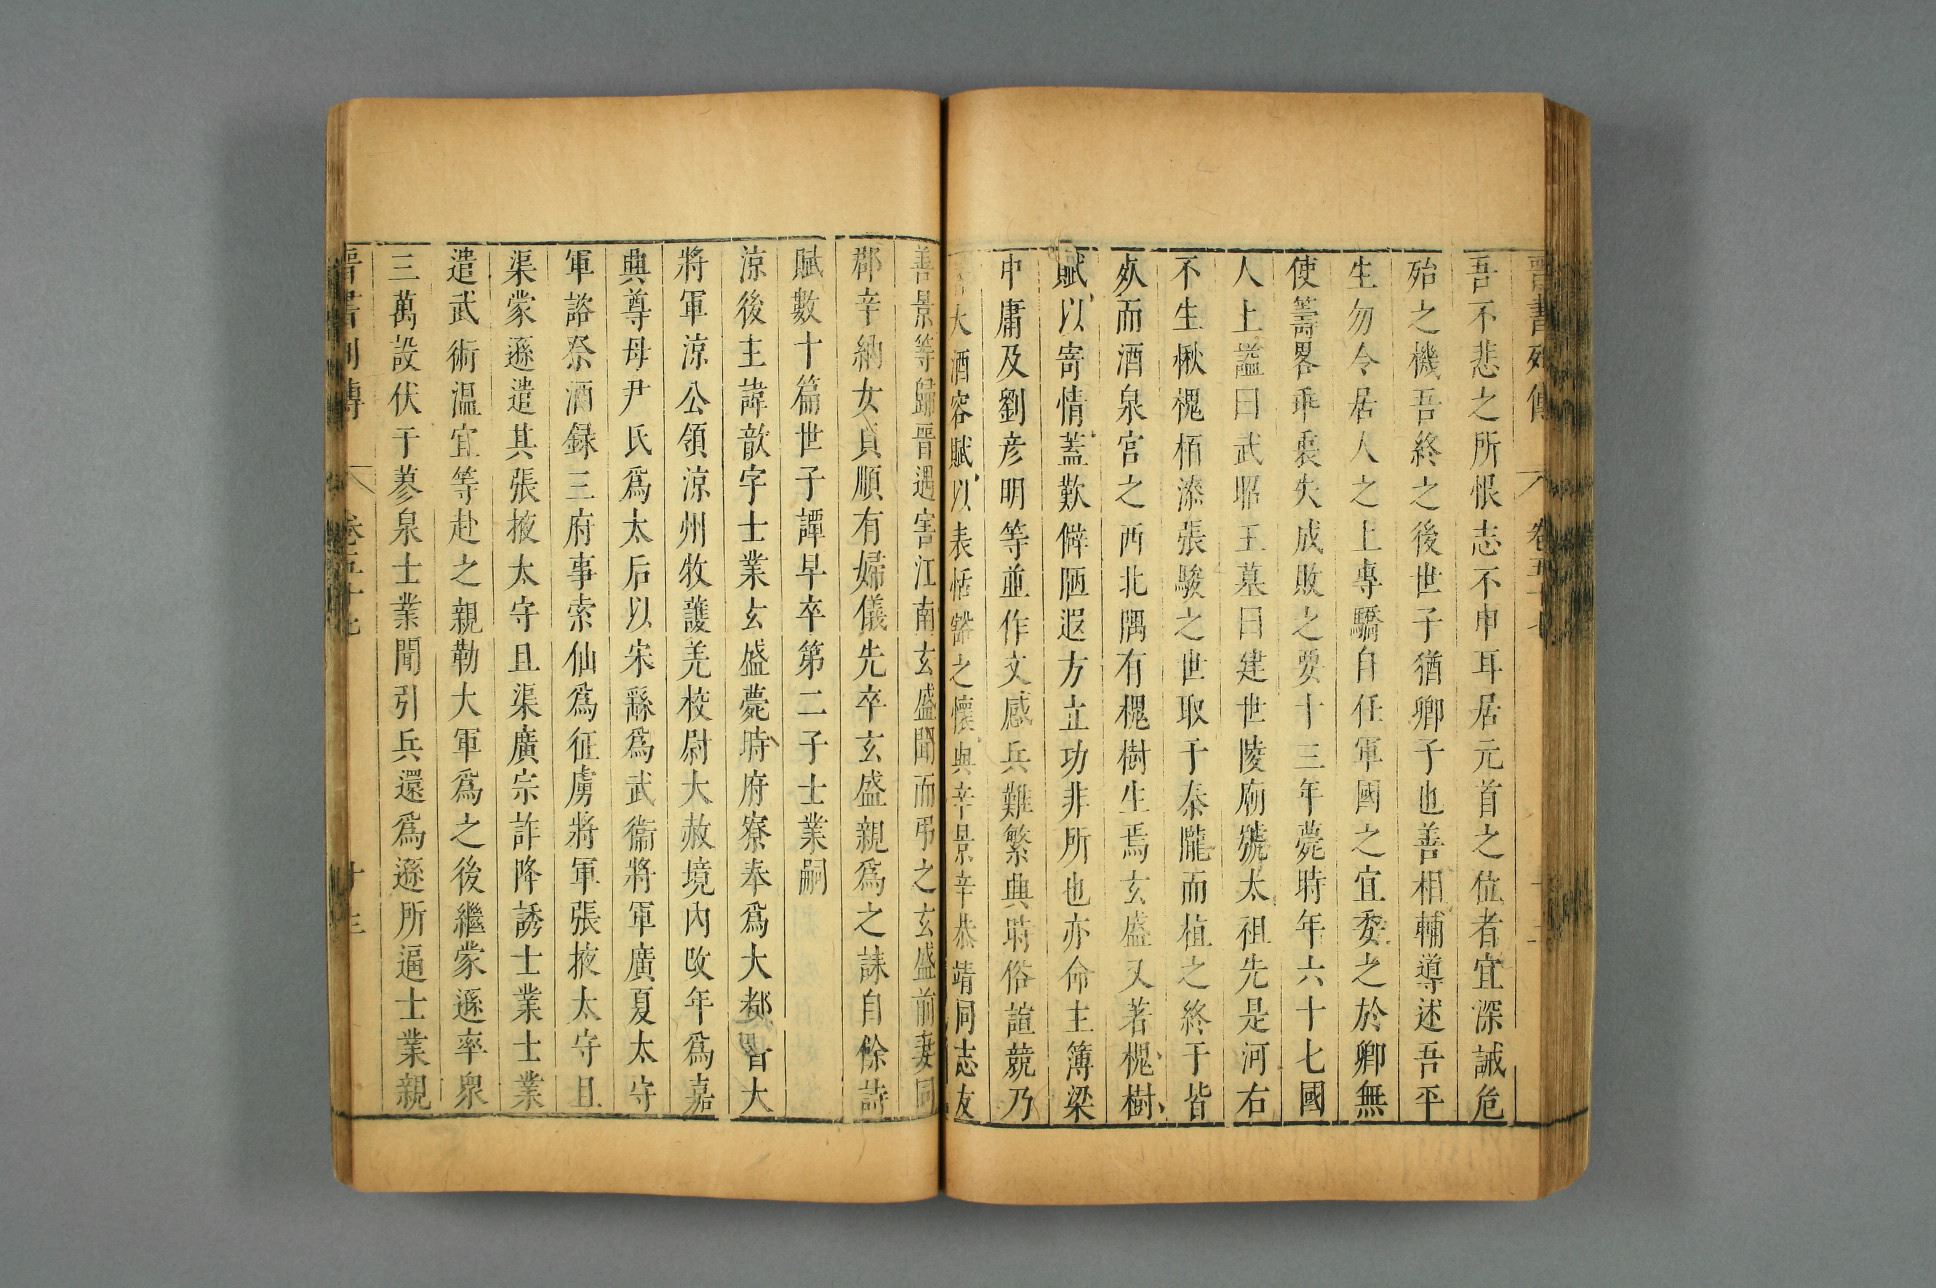 晉書列傳 卷五十七 十二
吾不悲之所恨志不申耳居元首之位者宜深誡危
殆之機吾終之後世子猶卿子也善相輔導述吾平
生勿令居人之上專驕自任軍國之宜委之於卿無
使籌畧乖衷失成敗之要十三年薨時年六十七國
人上謚曰武昭王墓曰建世陵廟號太祖先是河右
不生楸槐栢漆張駿之世取于秦隴而植之終于皆
𣦸而酒泉宮之西北隅有槐樹生焉玄盛又著槐樹
賦以寄情蓋歎僻陋遐方立功非所也亦命主簿梁
中庸及劉彦明等並作文感兵難繁興時俗諠競乃
大酒容賦以表恬豁之懷與辛景辛恭靖同志友
善景等歸晉遇害江南玄盛聞而弔之玄盛前妻同
郡辛納女貞順有婦儀先卒玄盛親爲之誄自餘詩
賦數十篇世子譚早卒第二子士業嗣
涼後主諱歆字士業玄盛薨時府寮奉爲大都督大
將軍涼公領涼州牧護羌校尉大赦境內改年爲嘉
興尊母尹氏爲太后以宋繇爲武衞將軍廣夏太守
軍諮祭酒録三府事索仙爲征虜將軍張掖太守且
渠蒙遜遣其張掖太守且渠廣宗詐降誘士業士業
遣武術温宜等赴之親勒大軍爲之後繼蒙遜率衆
三萬設伏于蓼泉士業聞引兵還爲遜所逼士業親
晉書列傳 卷五十七 十三